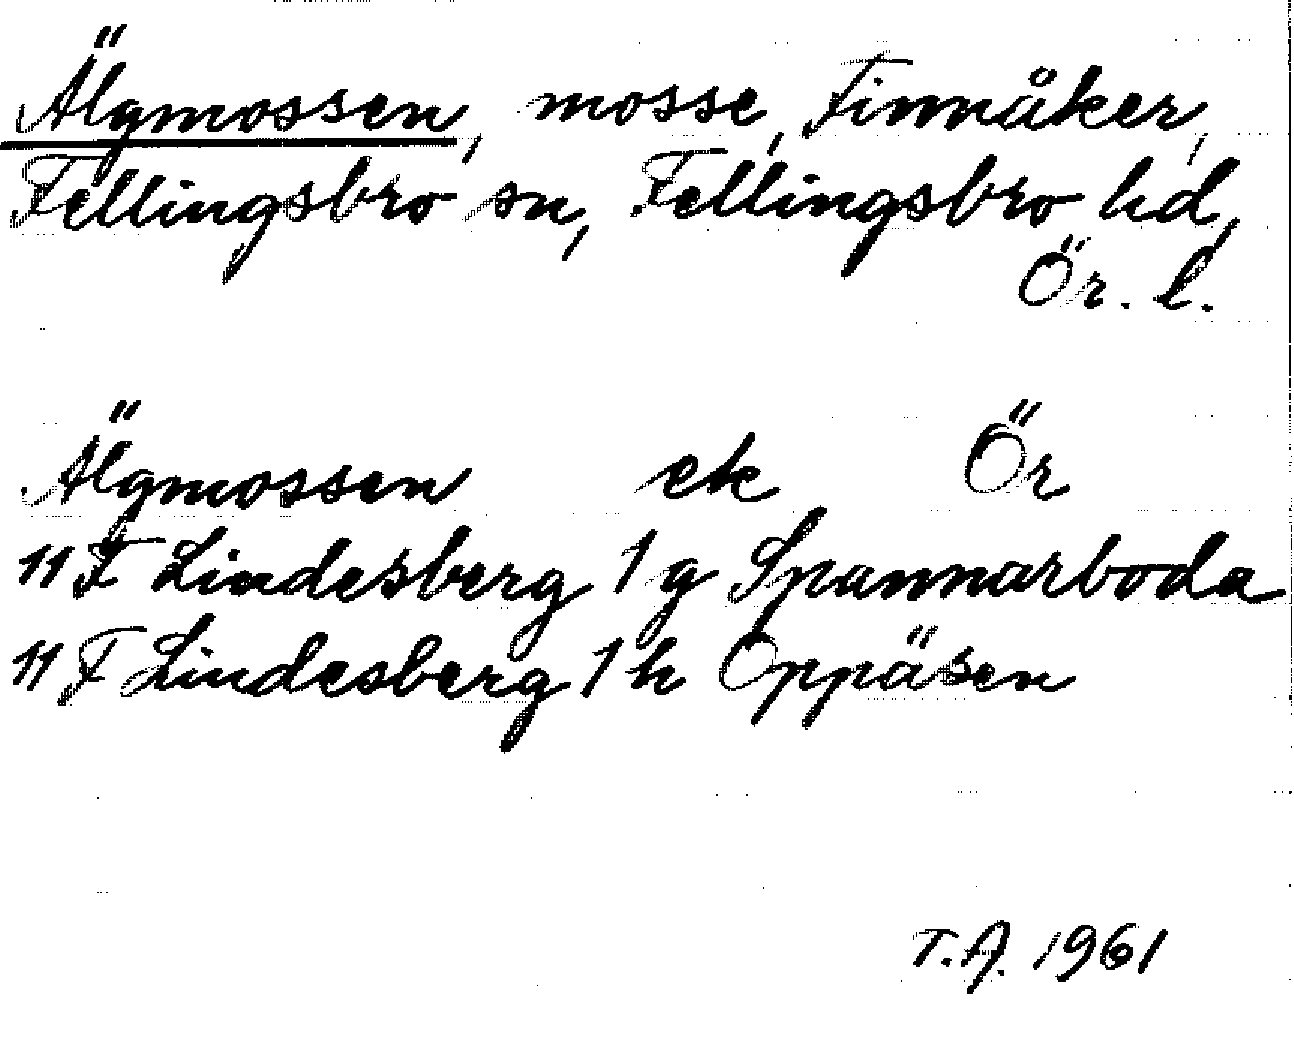 Älgmossen, mosse, Finnåker,
Fellingsbro sn, Fellingsbro hd,
Ör. l.
Älgmossen ek Ör
11 F Lindesberg 1 g Spannarboda
11 F Lindesberg 1 h Oppäsen
T.A. 1961